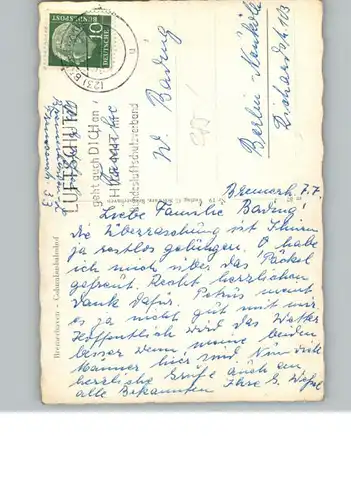 10
DEUTSCHE
BUNDESPOST
LUFTSCHUTZ
geht auch DICH an
Bundesluftschutzverband
W. Bading
Berlin Neukölln
Richardstr. 113
Bremerh. 7.7.
Liebe Familie Bading!
Die Überraschung ist Ihnen
ja restlos gelungen. O habe
ich mich über das Päckel
gefreut. Recht herzlichen
Dank dafür. Petrus meint
es ja nicht gut mit mir
Hoffentlich wird das Wetter
besser wenn meine beiden
Männer hier sind. Nun viele
herzliche Grüße auch an
alle Bekannten Ihre G.
Bremerhaven - Columbusbahnhof